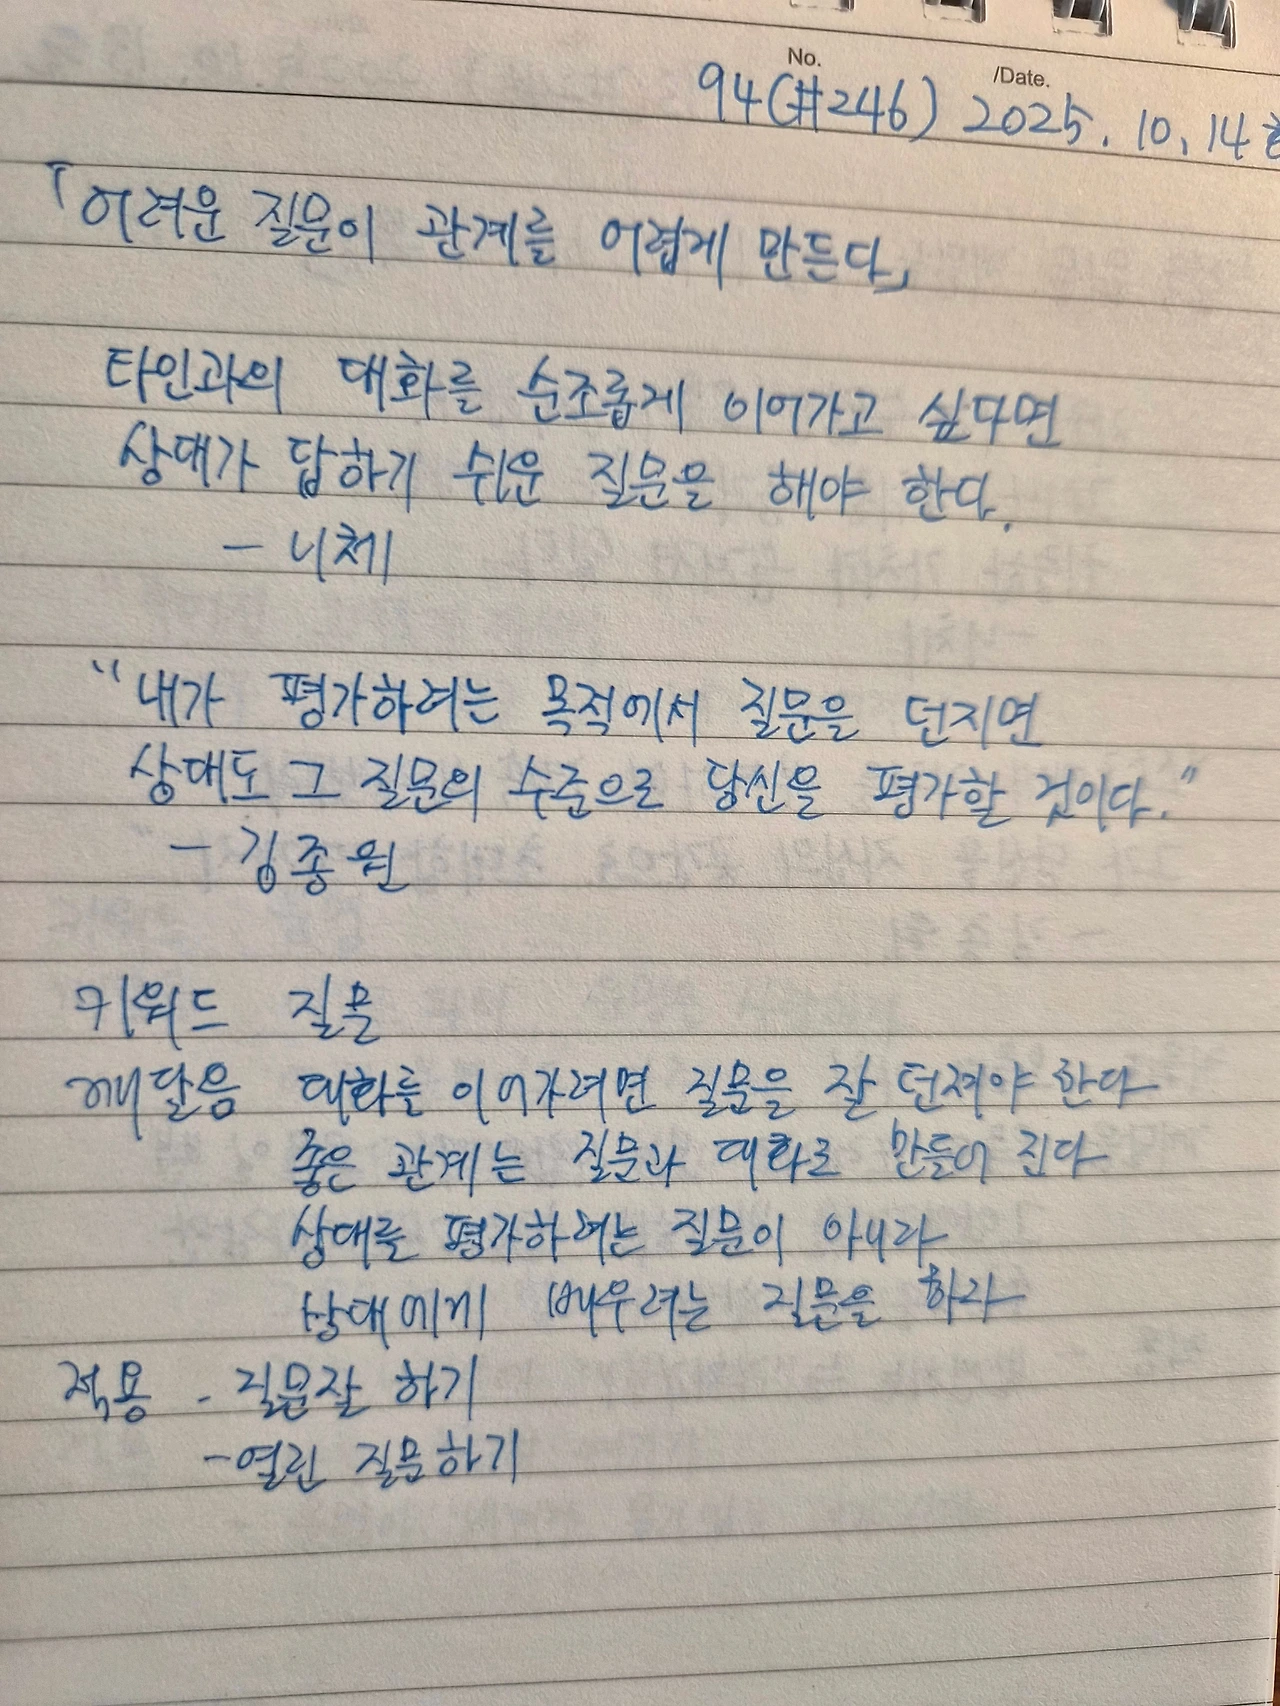 No.
/Date.
94(#246) 2025. 10. 14 화
「어려운 질문이 관계를 어렵게 만든다」
타인과의 대화를 순조롭게 이어가고 싶다면
상대가 답하기 쉬운 질문을 해야 한다.
- 니체
"내가 평가하려는 목적에서 질문을 던지면
상대도 그 질문의 수준으로 당신을 평가할 것이다."
- 김종원
키워드 질문
깨달음 대화를 이어가려면 질문을 잘 던져야 한다
좋은 관계는 질문과 대화로 만들어 진다
상대를 평가하려는 질문이 아니라
상대에게 배우려는 질문을 하라
적용 - 질문잘 하기
- 열린 질문하기